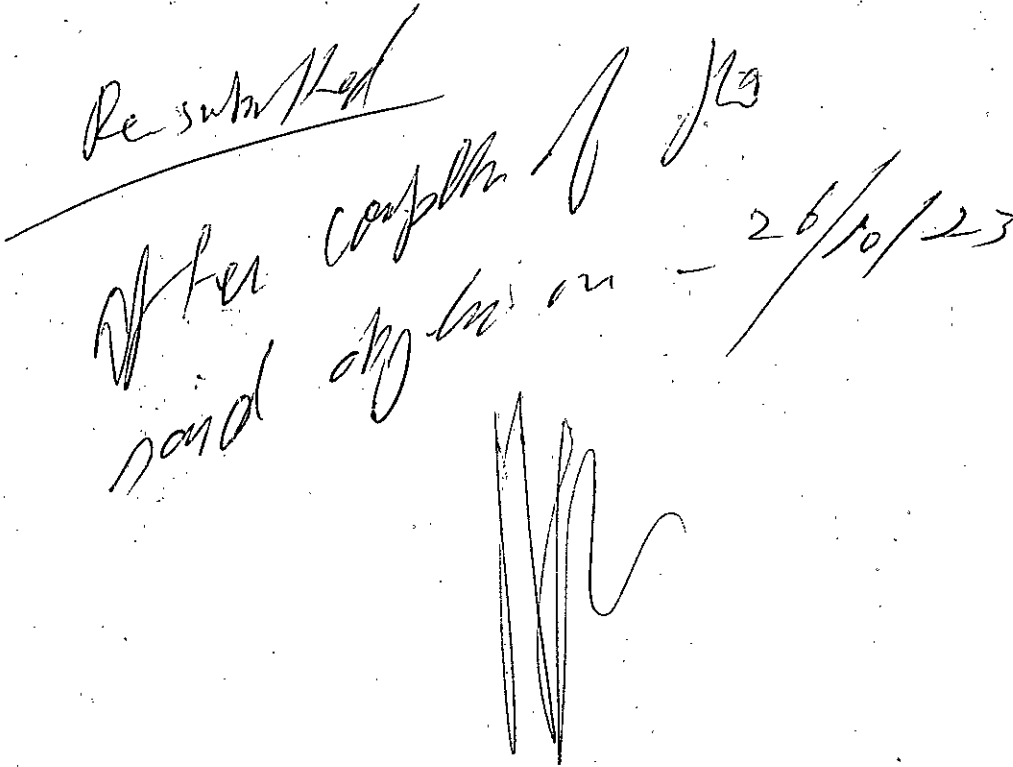 Re submitted
After completion of the
said objection - 26/10/23